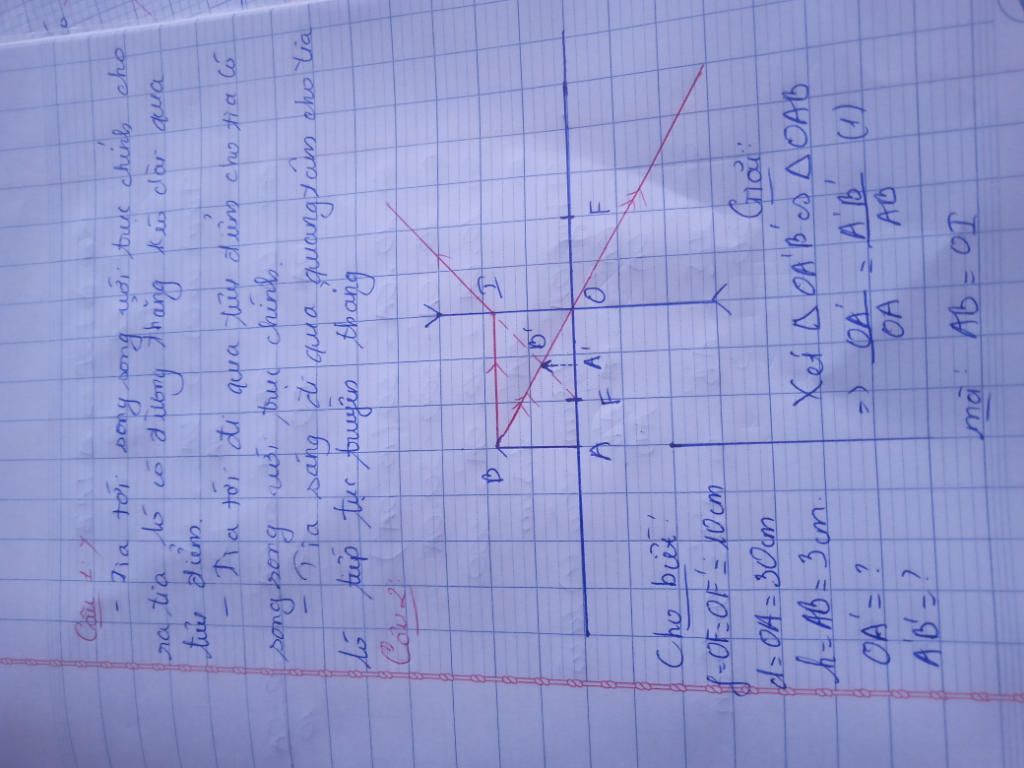 Câu 1: 7
- Tia tới song song với trục chính cho
ra tia ló có đường thẳng kéo dài qua
tiêu điểm.
- Tia tới đi qua tiêu điểm cho tia có
song song với trục chính.
- Tia sáng đi qua quang tâm cho tia
ló tiếp tục truyền thẳng
Câu 2:
B
I
B'
A
F
A'
O
F
Cho biết:
f=OF=OF'=10cm
d=OA=30cm
h=AB=3cm.
OA'=?
A'B'=?
Giải:
Xét Δ OA'B' ∽ Δ OAB
=> OA'/OA = A'B'/AB (1)
mà: AB = OI